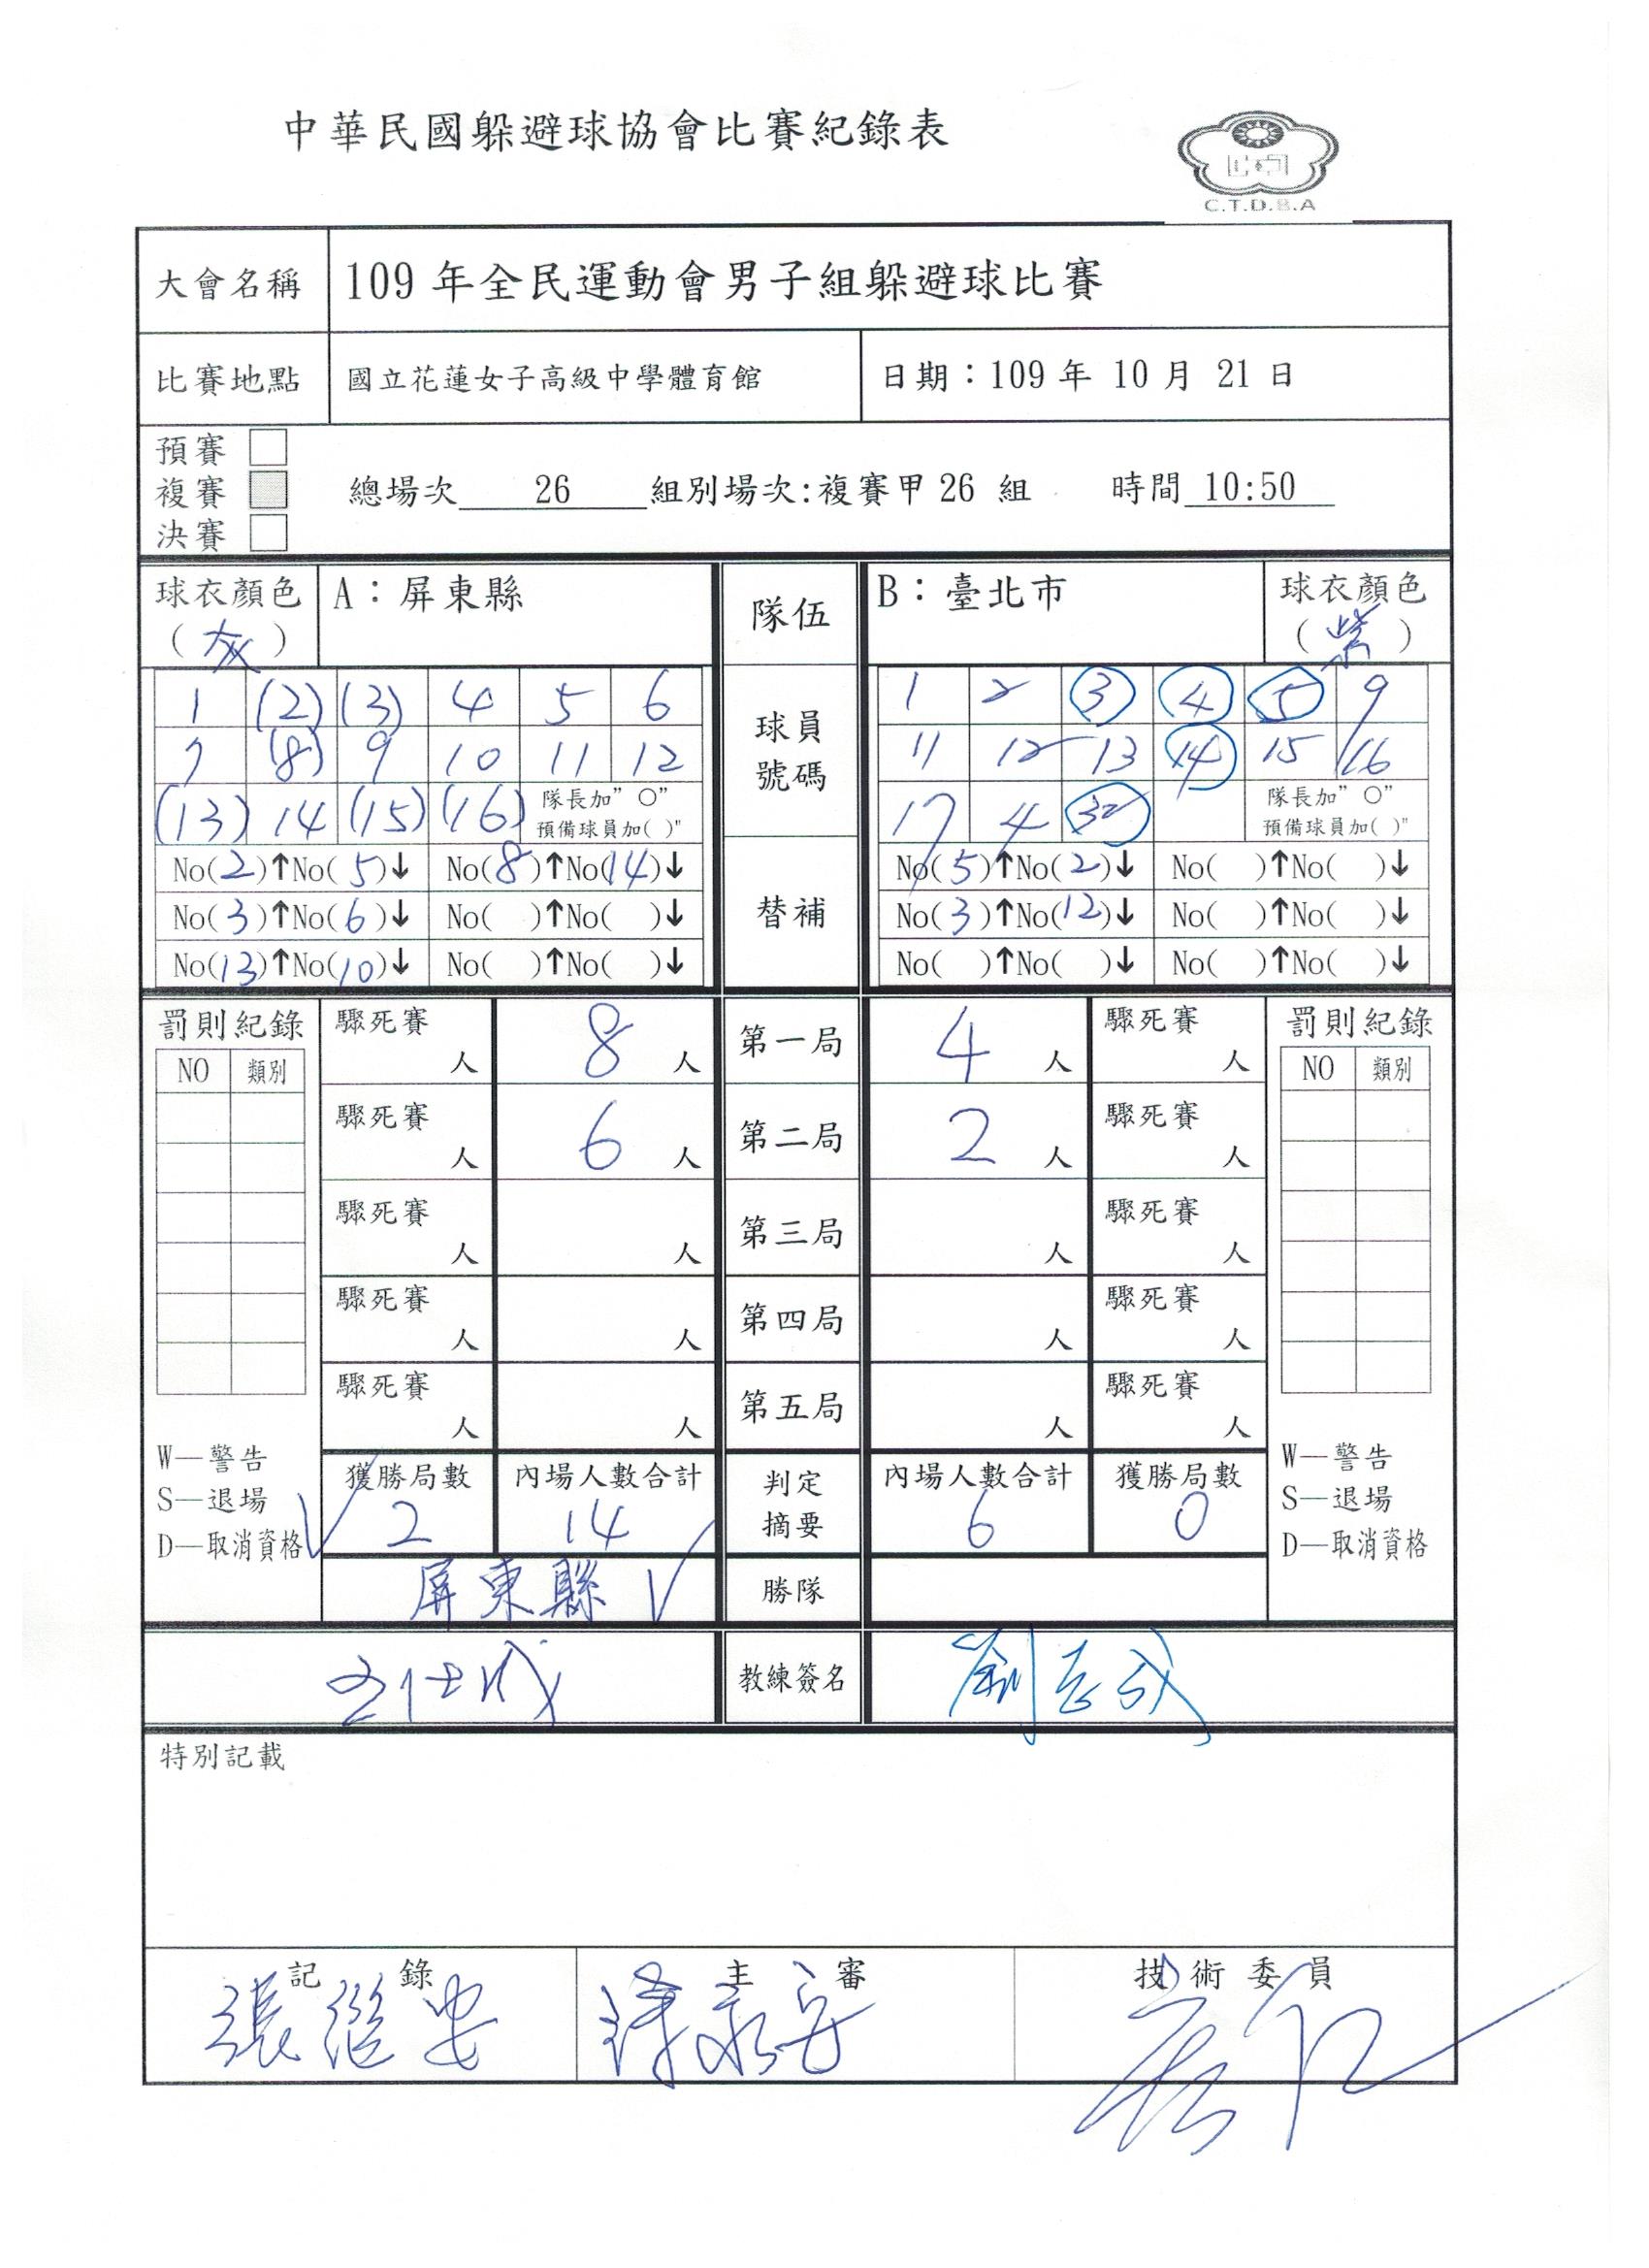 中華民國躲避球協會比賽紀錄表
C.T.D.B.A
大會名稱 109 年全民運動會男子組躲避球比賽
比賽地點 國立花蓮女子高級中學體育館 日期：109 年 10 月 21 日
預賽
複賽 總場次 26 組別場次:複賽甲 26 組 時間 10:50
決賽
球衣顏色 A：屏東縣 隊伍 B：臺北市 球衣顏色
(灰) (紫)
1 (2) (3) 4 5 6 球員 1 2 3 4 5 9
7 (8) 9 10 11 12 號碼 11 12 13 14 15 16
(13) 14 (15) (16) 隊長加”O” 17 4 32 隊長加”O”
預備球員加( )" 預備球員加( )"
No(2)↑No(5)↓ No(8)↑No(14)↓ No(5)↑No(2)↓ No( )↑No( )↓
No(3)↑No(6)↓ No( )↑No( )↓ 替補 No(3)↑No(12)↓ No( )↑No( )↓
No(13)↑No(10)↓ No( )↑No( )↓ No( )↑No( )↓ No( )↑No( )↓
罰則紀錄 驟死賽 人 8 人 第一局 4 人 驟死賽 人 罰則紀錄
NO 類別 NO 類別
驟死賽 人 6 人 第二局 2 人 驟死賽 人
驟死賽 人 人 第三局 人 驟死賽 人
驟死賽 人 人 第四局 人 驟死賽 人
驟死賽 人 人 第五局 人 驟死賽 人
W—警告 獲勝局數 內場人數合計 判定 內場人數合計 獲勝局數 W—警告
S—退場 2 14 摘要 6 0 S—退場
D—取消資格 D—取消資格
屏東縣 勝隊
教練簽名
特別記載
記錄 主審 技術委員
張繼安